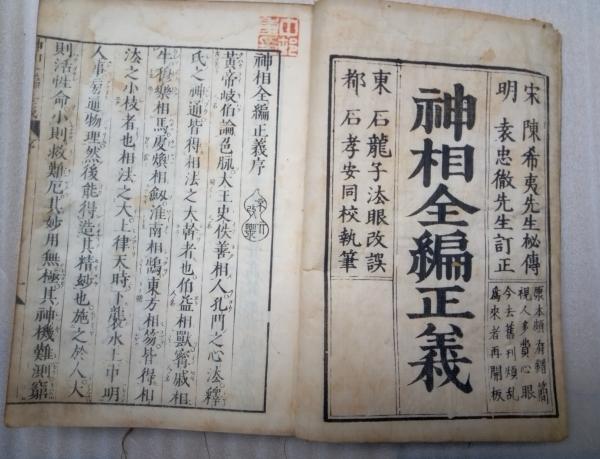 宋 陳希夷先生秘傳
明 袁忠徹先生訂正
原本頗有錯簡
視人多費心眼
今去舊刊煩亂
爲來者再開板
神相全編正義
東 石龍子法眼改誤
都 石孝安同校執筆
神相全編正義序
黄帝岐伯論色脉大王史佚善相人孔門之心法釋
氏之神通皆得相法之大幹者也伯益相獸甯戚相
牛樂相馬煥相劍淮南相鵠東方相笏皆得相
法之小枝者也相法之大上律天時下襲水土中明
人事窮通物理然後能得造其精妙也施之於人大
則活性命小則救難厄其妙用無極其神機難測窮